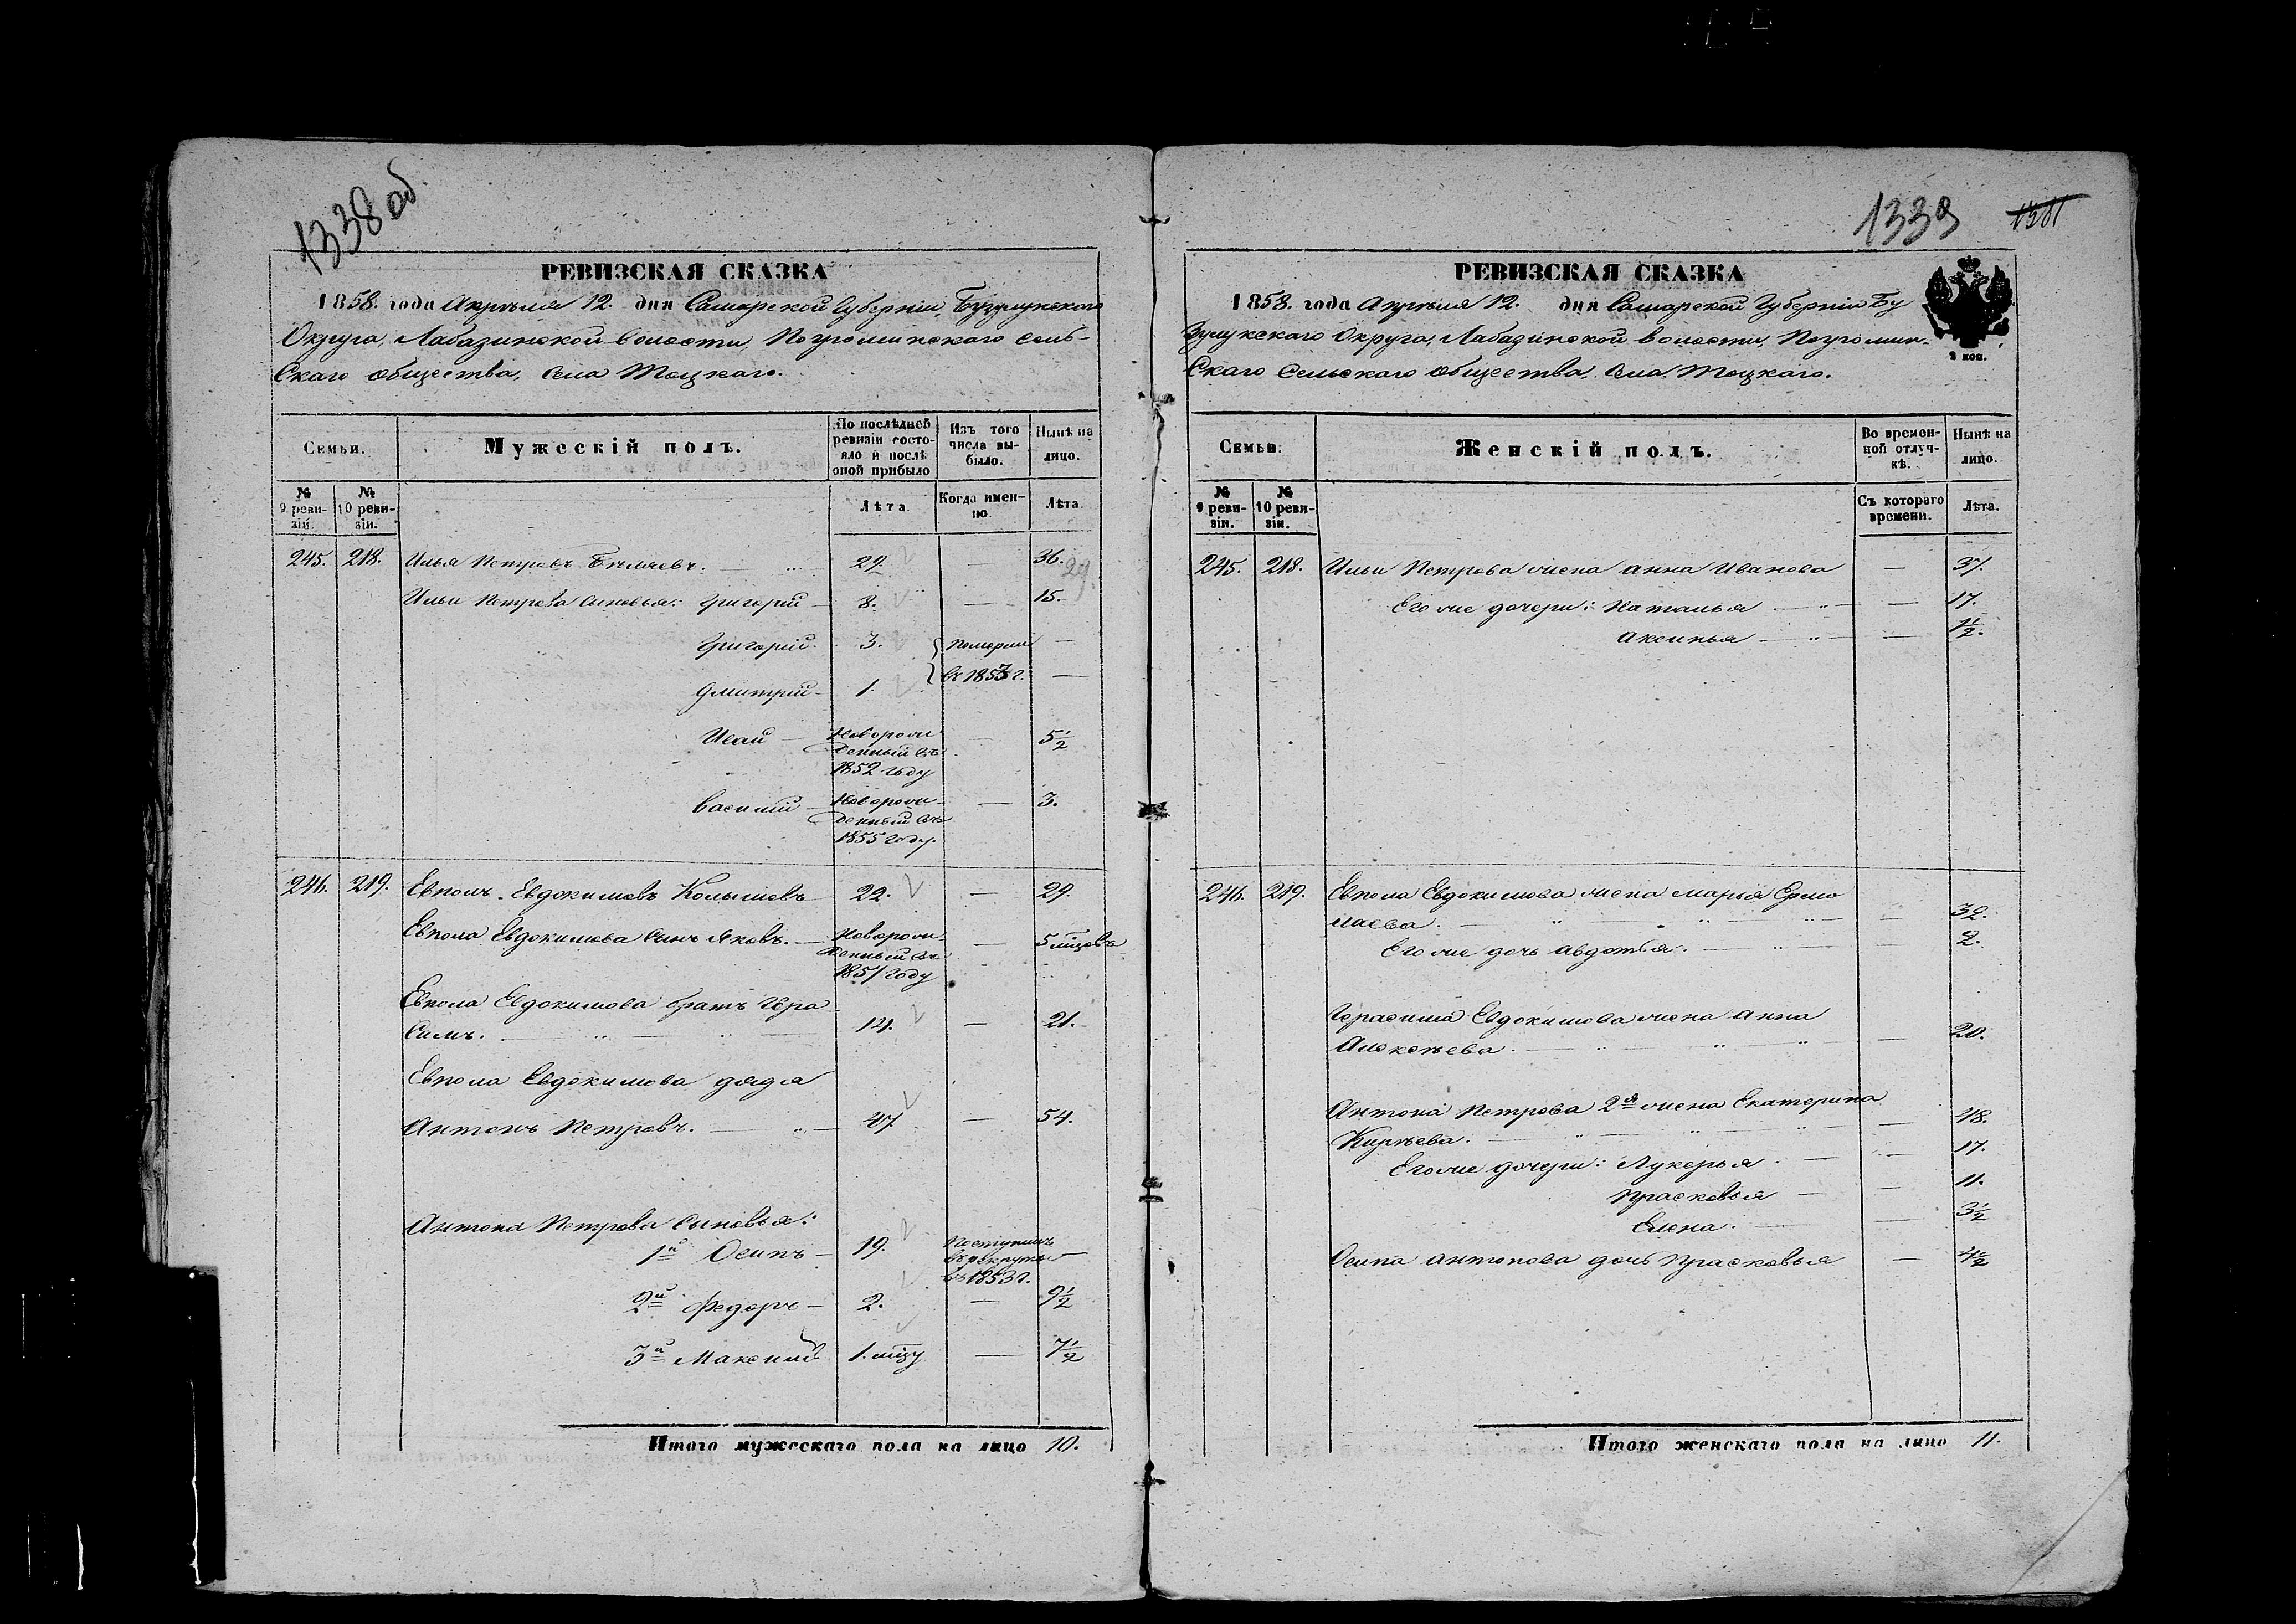 1338 об.
РЕВИЗСКАЯ СКАЗКА
1858. года Апрѣля 12. дня Самарской Губерніи, Бузулукскаго
Округа, Лабазинской волости, Погроминскаго сель-
скаго общества, села Тоцкаго.
Семьи.
Мужескій полъ.
По послѣдней ревизіи состояло и послѣ оной прибыло
Изъ того числа выбыло.
Нынѣ на лицо.
№ 9 ревизіи.
№ 10 ревизіи.
Лѣта.
Когда именно.
Лѣта.
245. 218. Илья Петровъ Бѣляевъ. 29. — 36. 29.
Ильи Петрова сыновья: Григорій 8. — 15.
Григорій 3. Померли —
Дмитрій 1. въ 1853 г. —
Исай — Новорож-
денный въ — 5 1/2
1852 году
Василій — Новорож-
денный въ — 3.
1855 году.
246. 219. Евполъ Евдокимовъ 22. — 29.
Евпола Евдокимова сынъ Яковъ. — Новорож-
денный въ — 5 мѣсяцовъ
1857 году
Евпола Евдокимова братъ Гера-
симъ. 14. — 21.
Евпола Евдокимова дядя
Антонъ Петровъ. 47. — 54.
Антона Петрова сыновья:
1й Осипъ — 19. Поступилъ
въ рекруты —
въ 1853 г.
2й Федоръ — 2. — 9 1/2
3й Максимъ 1. мѣсяцу — 7 1/2
Итого мужескаго пола на лицо 10.
1339
РЕВИЗСКАЯ СКАЗКА
1858. года Апрѣля 12. дня Самарской Губерніи Бу
зулукскаго Округа, Лабазинской волости, Погромин-
скаго Сельскаго общества села Тоцкаго.
2 коп.
Семьи.
Женскій полъ.
Во временной отлучкѣ.
Нынѣ на лицо.
№ 9 ревизіи.
№ 10 ревизіи.
Съ котораго времени.
Лѣта.
245. 218. Ильи Петрова жена Анна Иванова — 37.
Его же дочери: Наталья — 17.
Аксинья — 1 1/2.
246. 219. Евпола Евдокимова жена Марья Ермо
лаева. — 32.
Его же дочь Авдотья. — 2.
Герасима Евдокимова жена Анна
Алексѣева. — 20.
Антона Петрова 2я жена Екатерина
Кирѣева. — 48.
Его же дочери: Лукерья. — 17.
Прасковья — 11.
Елена. — 3 1/2
Осипа Антонова дочь Прасковья — 4 1/2
Итого женскаго пола на лицо 11.